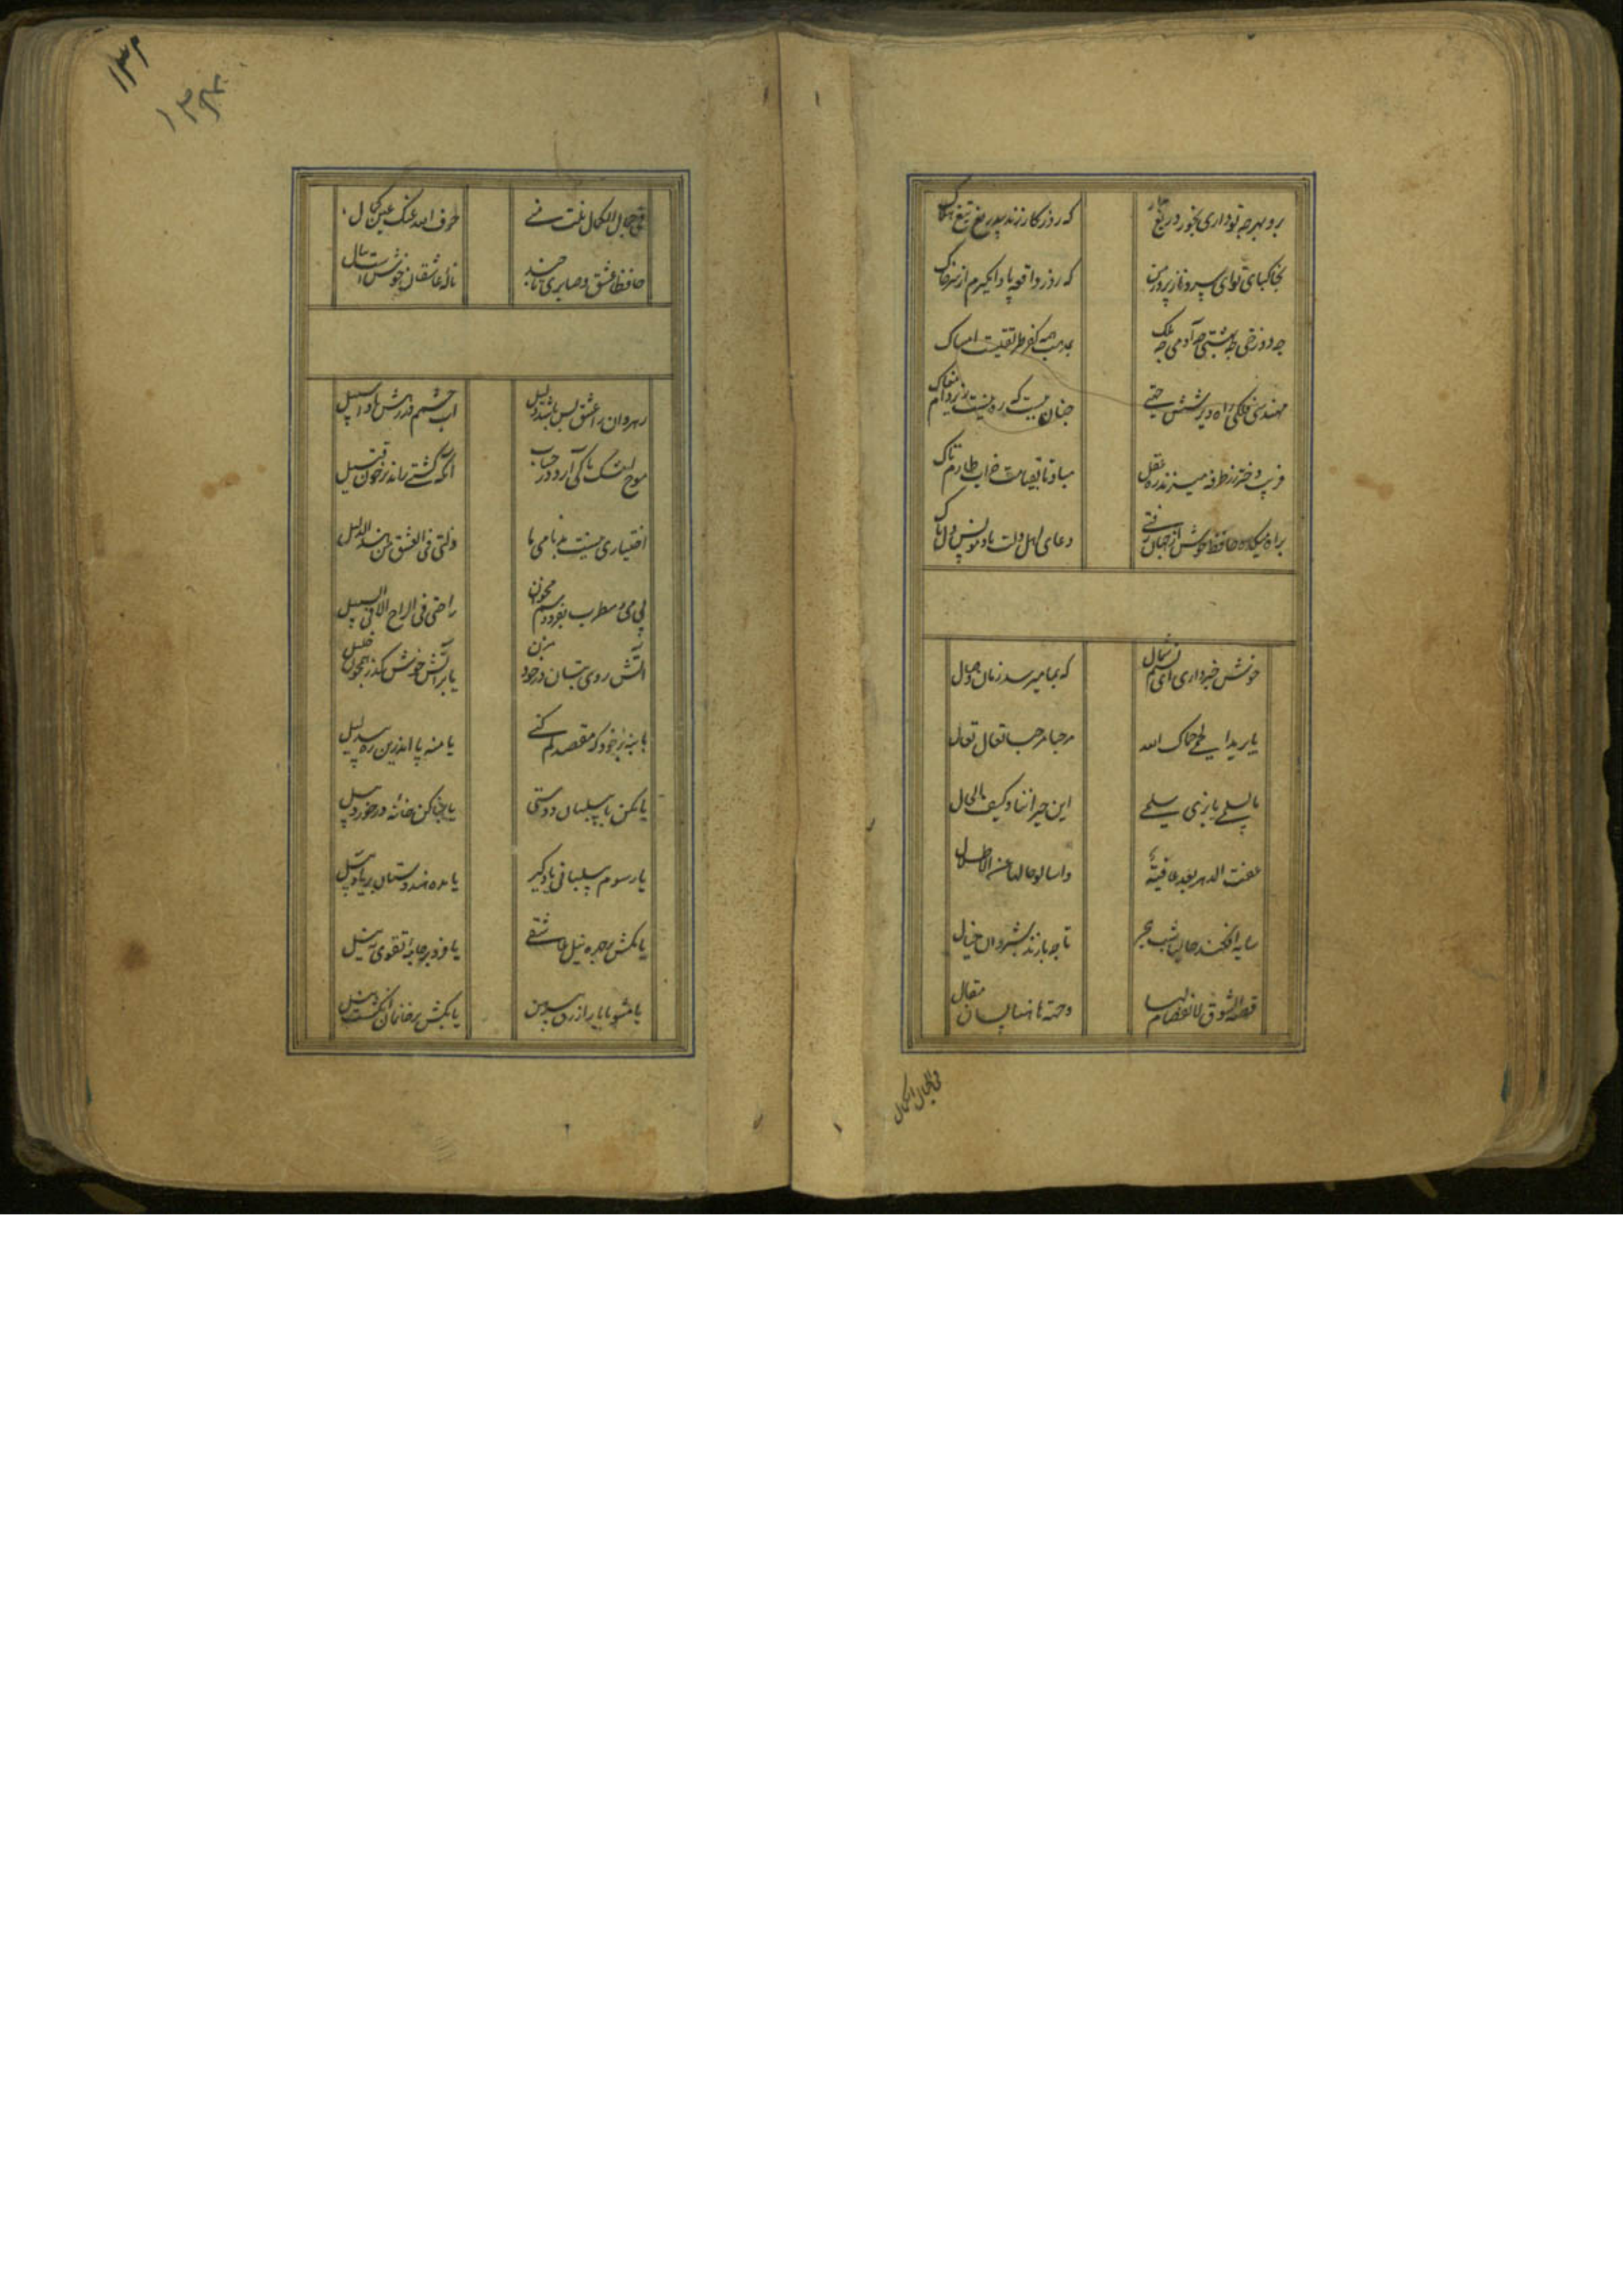 برو بهرچه تو داری بخور دریغ مدار
که روزکار زند بیدریغ تیغ هلاک
بخاکپای تو ای سرو نازپرور من
که روز واقعه پا وا مکیرم از سر خاک
چه دوزخی چه بهشتی چه آدمی چه ملک
بمذهب همه کفر طریقتست امساک
مهندس فلکی راه دیر شش جهتی
چنان ببست که ره نیست زیر دام مغاک
فریب دختر رز طرفه میزند ره عقل
مباد تا بقیامت خراب طارم تاک
براه میکده حافظ خوش از جهان رفتی
دعای اهل دلت باد مونس دل پاک
خوش خبر داری ای نسیم شمال
که بما میرسد زمان وصال
یا برید الحمی حماک الله
مرحبا مرحبا تعال تعال
ما لسلمی و من بذی سلم
این جیراننا و کیف الحال
عفت الدهر بعد عافیة
واسالوا حالها عن الاطلال
سایه افکند حالیا شب هجر
تا چه بازند شبروان خیال
قصة الشوق لا انفصام لها
لسان مقال
فی الجمال الکمال
۱۳۲
فی جمال الکمال نلت منی
صرف الله عنک عین کمال
حافظا عشق و صابری تا چند
ناله عاشقان خوشست بنال
رهروان را عشق بس باشد دلیل
آب چشم اندر رهش کردم سبیل
موج اشک ما کی آرد در حساب
آنکه کشتی راند بر خون قتیل
اختیاری نیست بدنامی ما
ضلنی فی العشق من یهدی السبیل
بی می و مطرب بفردوسم مخوان
راحتی فی الراح لا فی السلسبیل
آتش روی بتان در خود مزن
یا بر آتش خوش کذر همچون خلیل
یا بنه بر خود که مقصد کم کنی
یا منه پا اندرین ره بی دلیل
یا مکن با پیلبانان دوستی
یا بنا کن خانه در خورد پیل
یا رسوم پیلبانی یاد کیر
یا مده هندوستان بر یاد پیل
یا مکش بر چهره نیل عاشقی
یا فرو بر جامه تقوی به نیل
یا مشو با یار ازرق پیرهن
یا بکش بر خانمان انکشت نیل